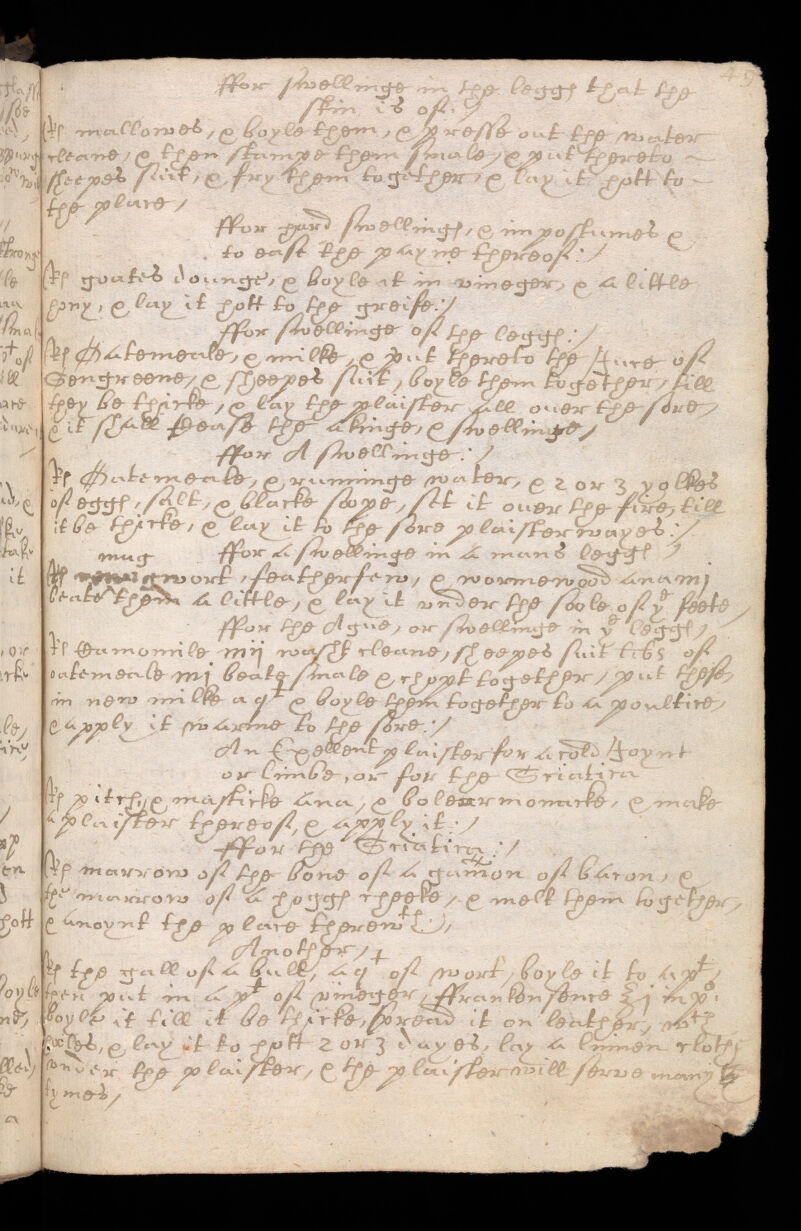 49
ffor swellinge in the leggs that the
skin is of:/
Rx mallowes, & boyle them, & presse out the water
cleane, & then stampe them smale, & put thereto ~
sheepes suit, & fry them together, & lay it hott to ~
the place,
ffor hard swellings, & impostumes &
to ease the payne thereof:/
Rx goates dounge, & boyle it in vineger, & a little
hony, & lay it hott to the greife:/
ffor swellinge of the leggs:/
Rx Oatemeale, & milke, & put thereto the Juce of
Sengreene, & sheepes suit, boyle them together, till
they be thicke, & lay the plaister all over the sore,
& it shall cease the akinge, & swellinge,
ffor A swellinge:/
Rx Oatemeale, & runninge water, & 2 or 3 yolkes
of eggs, salt, & blacke sope, set it over the fire, till
it be thicke, & lay it to the sore plaister wayes:/
ffor a swellinge in a mans leggs,
Rx mugwort, featherfew, & wormewood ana mj
beate them a little, & lay it vnder the soole of ye feete,
ffor the Ague, or swellinge in ye leggs,
Rx Camomile mij washt cleane, sheepes suit of
oatemeale mj beate smale & chopt together, put these
in new milke a qt & boyle them together to a poultice,
& apply it warme to the sore:/
An Exellent plaister for a cold Joynt
or limbe, or for the Sciatica
Rx pitch, & masticke ana, & bolearmonacke, & make
a plaister thereof, & apply it:/
ffor the Sciatica:/
Rx marrow of the bone of a gamon of bacon, &
the marrow of a hoggs cheeke, & melt them together,
& anoynt the place therewth:),
Another,
Rx the gall of a bull, a qt of wort, boyle it to a pt,
then put in a pt of vineger, ffrankensence ℥j in po:
boyle it till it be thicke, spread it on leather, wth
holes, & lay it to hott 2 or 3 dayes, lay a linnen cloth
vnder the plaister, & the plaister will serve many
tymes,